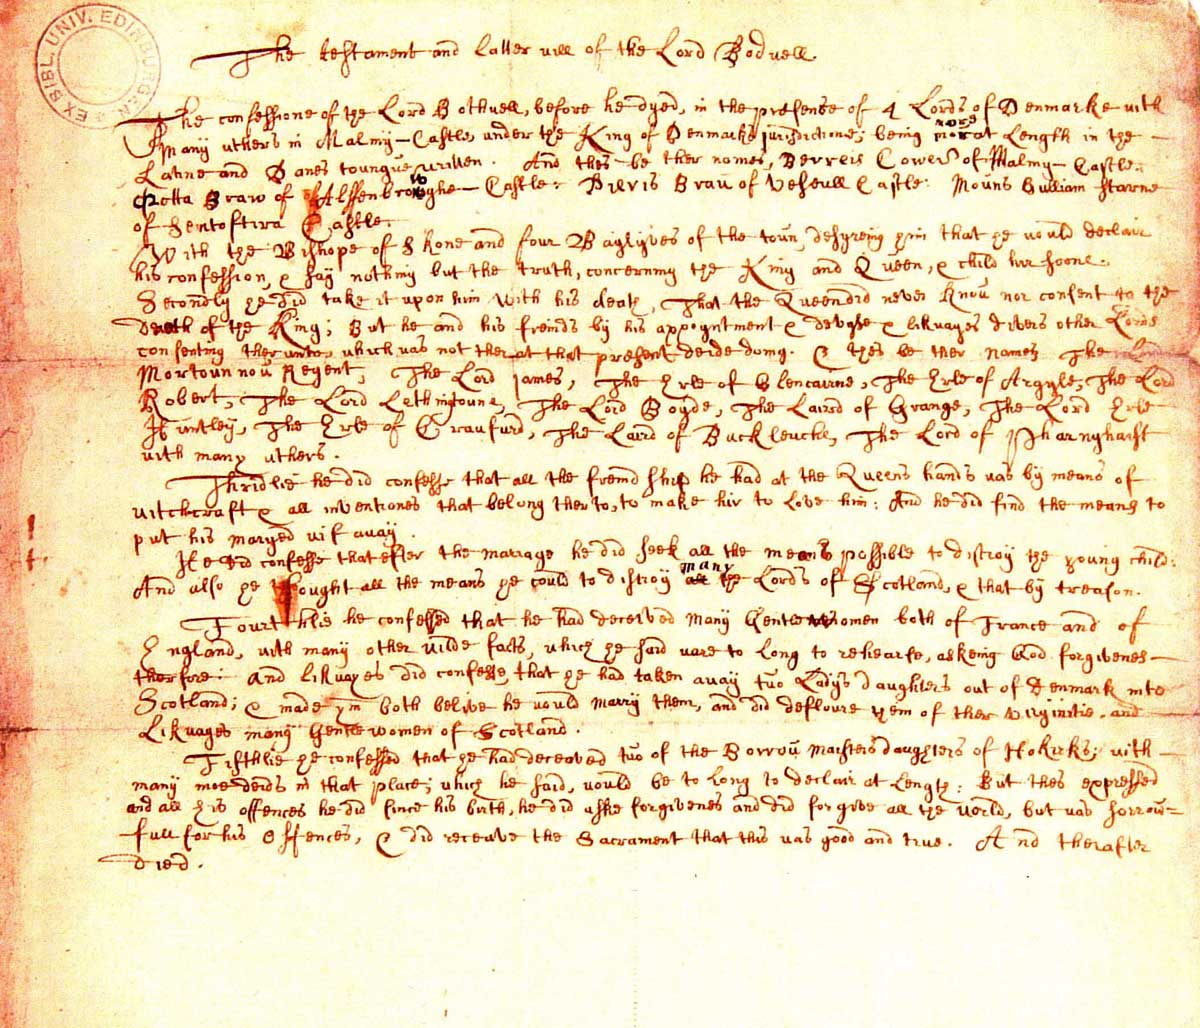 EX BIBL. UNIV. EDINBURGEN
The testament and latter vill of the Lord Bodvell.
The confessione of the Lord Bothvell, before he dyed, in the presense of 4 Lords of Denmarke vith
many uthers in Malmy-Castle, under the King of Denmarks jurisdictione; being more at Length in the
Latine and Danes toungue vritten. And thes be ther names, Berreis Cowes of Malmy-Castle:
Otta Braw of Alssenbrowghe-Castle: Pievis Brau of Vesvull Castle: Mouns Gulliam starne
of Sentoftira Castle.
With the Bishope of Skone and four Baglyves of the toun, desyreing him that he vould declair
his confession, & say nothing but the truth, concerning the King and Queen, & child hir soone.
Secondly he did take it upon him with his death, That the Queen did never knou nor consent to the
death of the King; But he and his freinds by his appoyntment & devyse & likvayes divers other Lords
consenting therunto, which vas not ther at that present deide doing. & thes be ther names The Lord
Mortoun nou Regent, The Lord james, The Erle of Glencairne, The Erle of Argyle, The Lord
Robert, The Lord Lethingtoune, The Lord Boyde, The Laird of Grange, The Lord Erle
Huntley, The Erle of Craufurd, The Laird of Buckleuch, The Lord of Pharnyhairst
vith many uthers.
Thridlie he did confesse that all the freindship he had at the Queens hands vas by means of
vitchcraft & all inventiones that belong therto, to make hir to Love him: And he did find the means to
put his maryed vif avay.
He did confesse that efter the marriage he did seek all the means possible to distroy the young child:
And also he thought all the means he could to distroy all many the Lords of Scotland, & that by treason.
Fourthlie he confessed that he had deceived many Gentlewomen both of France and of
England, vith many other vilde facts, which he said vare to long to rehearse, askeing God forgivenes
therfore: And likvayes did confesse, that he had taken avay tuo Ladys daughters out of Denmark into
Scotland; & made ym both belive he vould marry them, and did defloure them of ther virginitie. and
Likvayes many Gentlewomen of Scotland.
Fifthlie he confessed that he had deceaved tuo of the Borrou maisters daughters of Hokirks; vith
many moe deids in that place; which he said, vould be to Long to declair at Length: But thes expressed
and all his offences he did since his birth, he did aske forgivenes and did forgive all the vorld, but vas sorrou=
full for his Offences, & did receave the Sacrament that this vas good and true. And therafter
died.